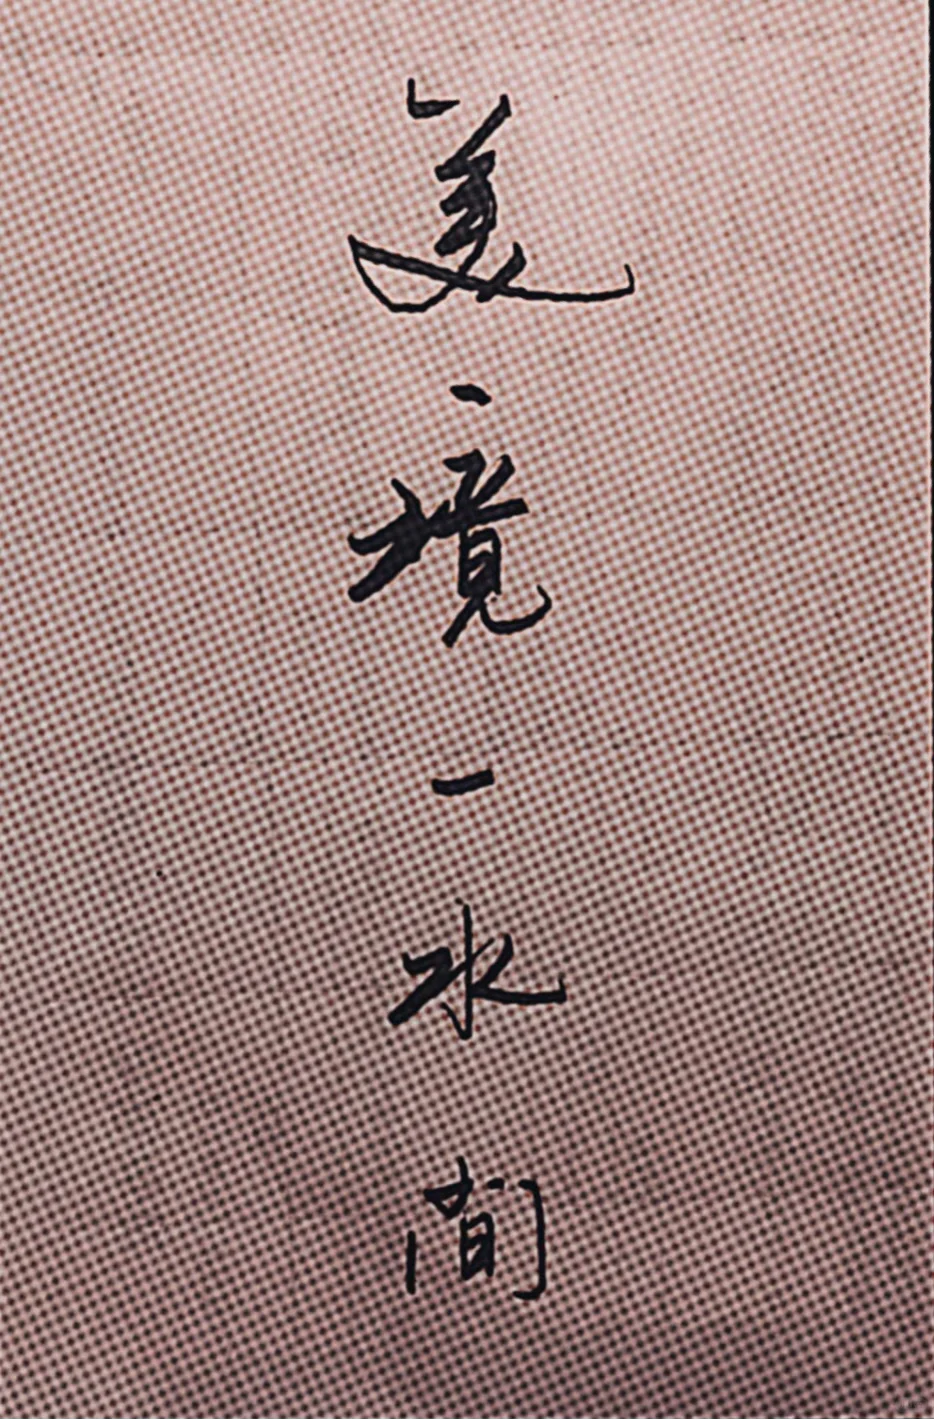 美境一水間